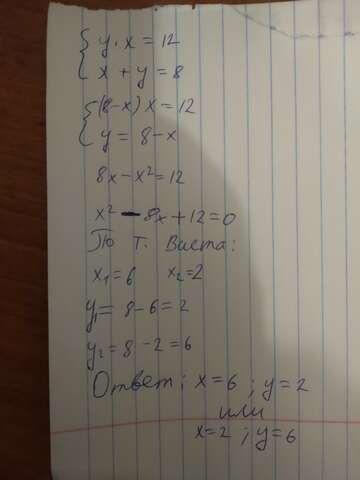 { y · x = 12
x + y = 8
{ (8-x) x = 12
y = 8-x
8x-x²=12
x² - 8x+12=0
По т. Виета:
x₁=6 x₂=2
y₁= 8-6=2
y₂=8-2=6
Ответ: x=6 ; y=2
или
x=2 ; y=6